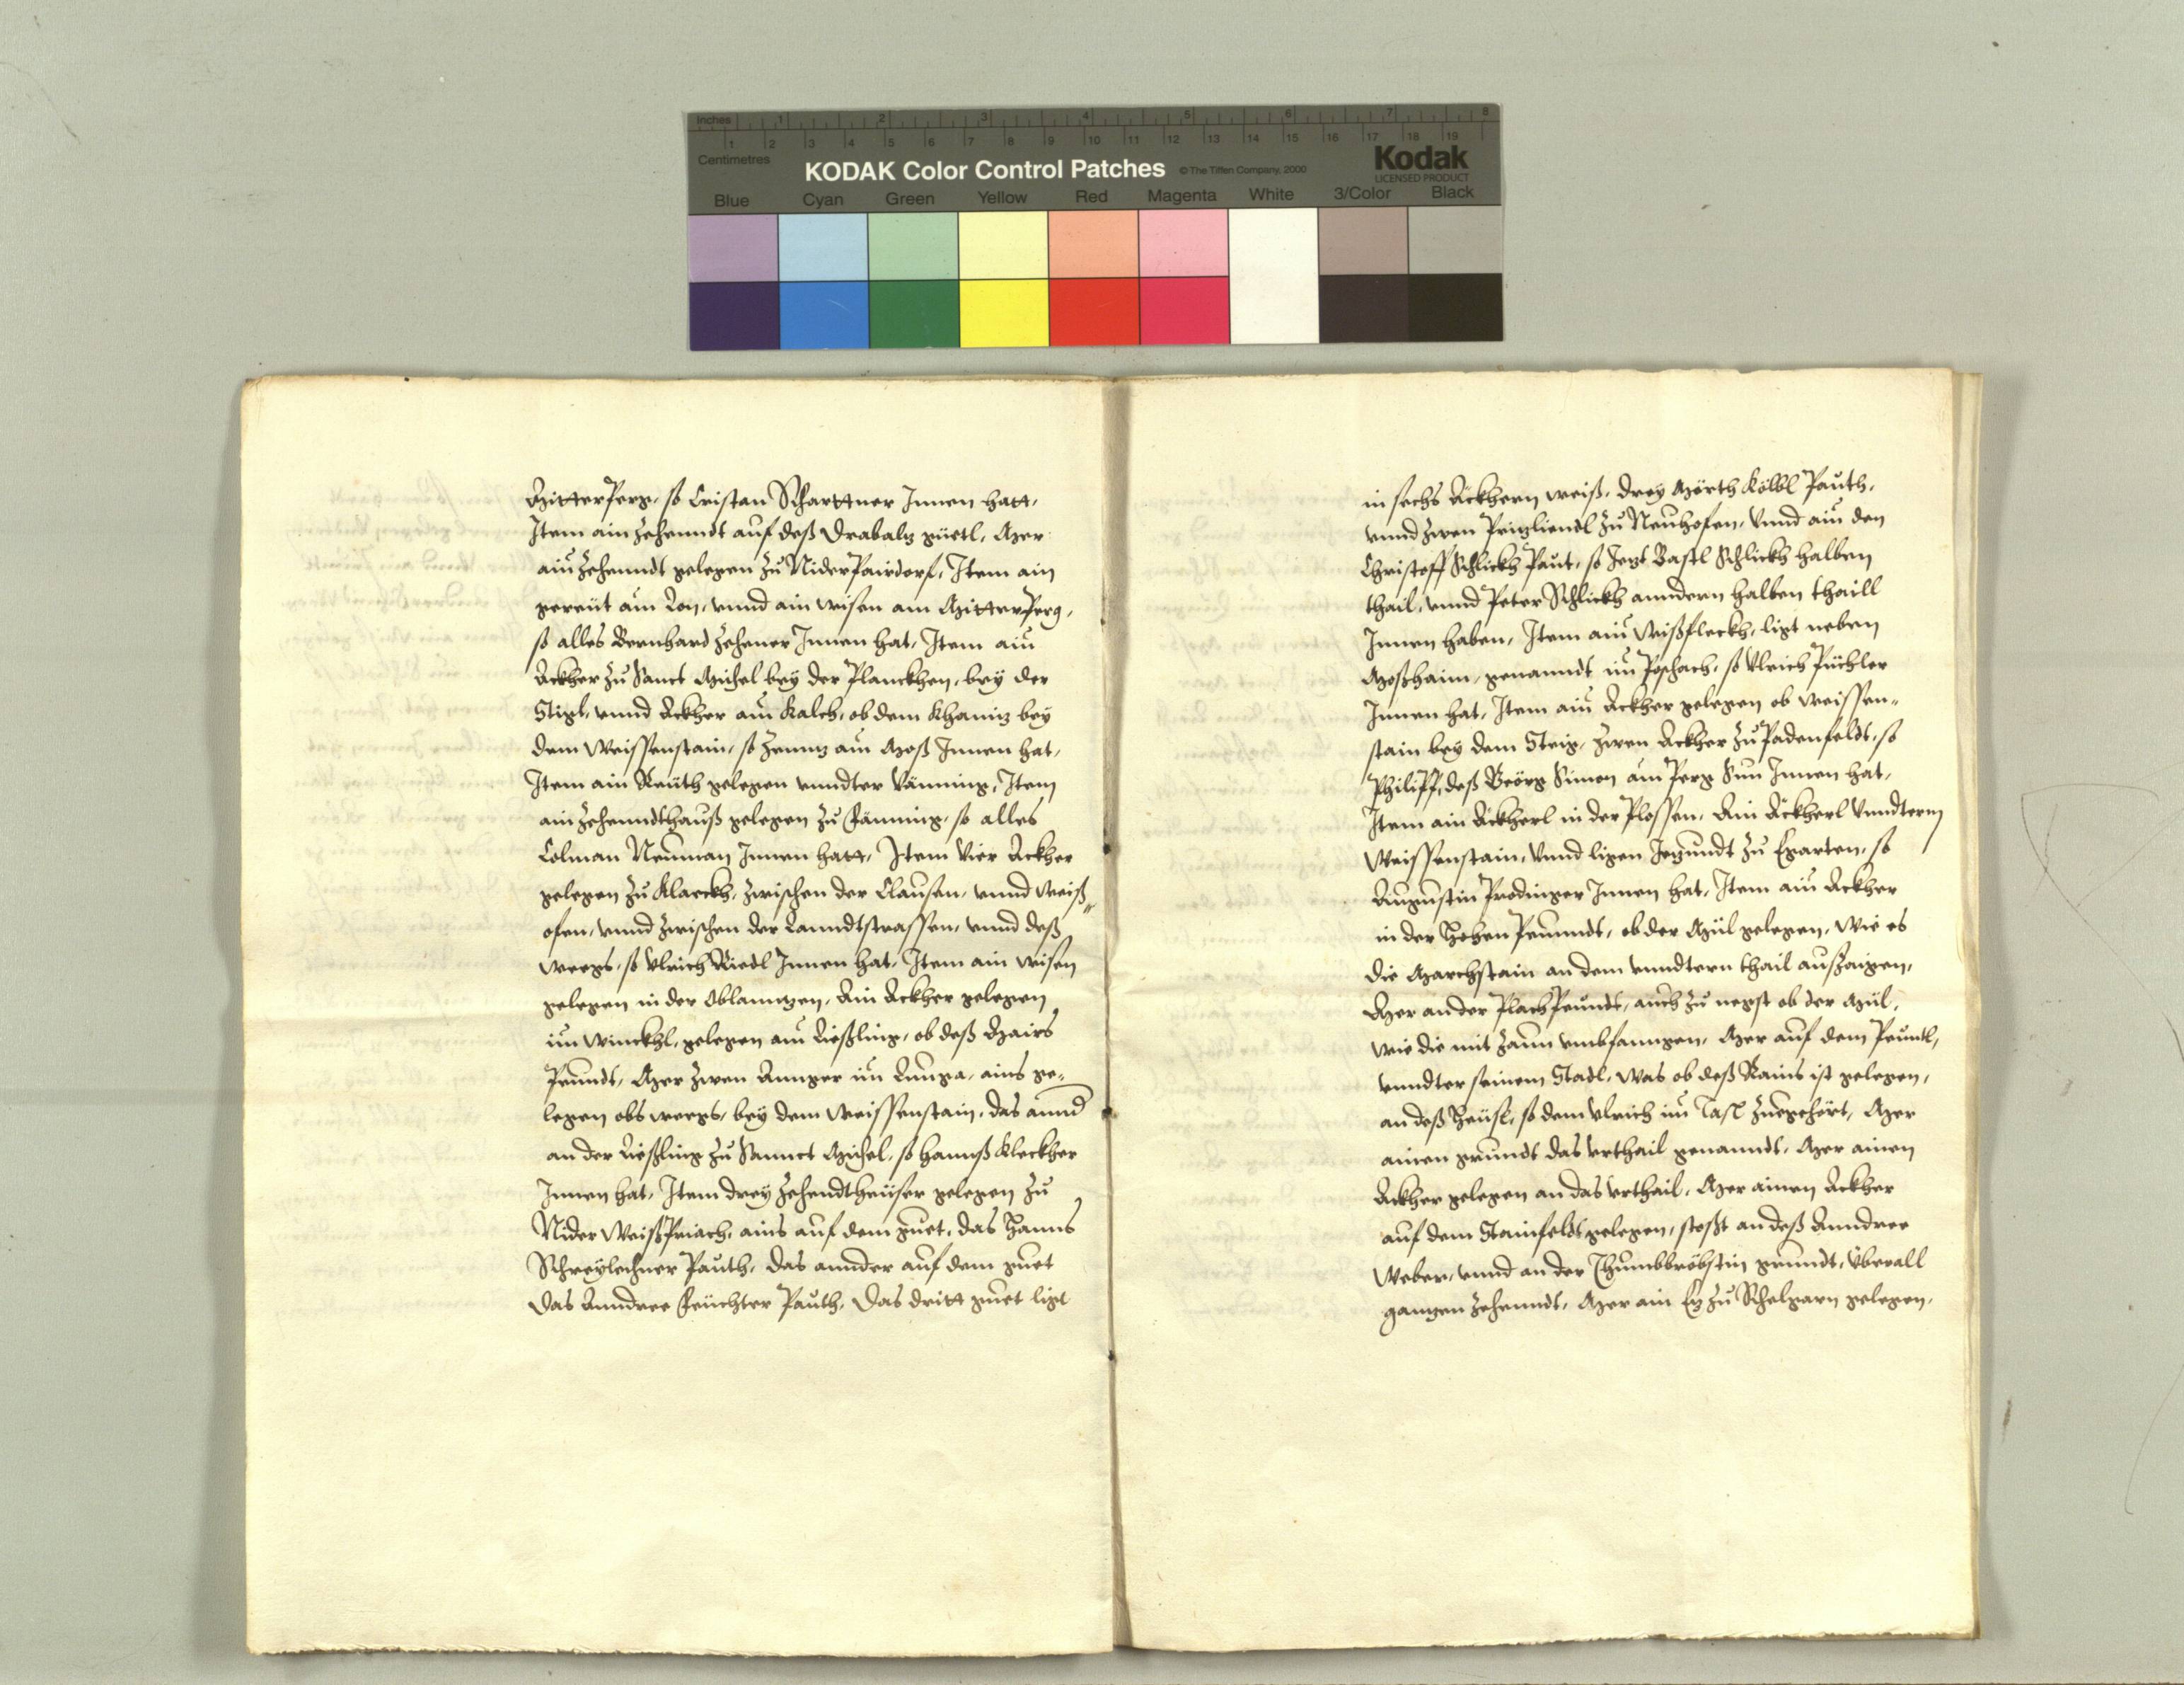 Inches 1 2 3 4 5 6 7 8
1 2 3 4 5 6 7 8 9 10 11 12 13 14 15 16 17 18 19
Centimetres
KODAK Color Control Patches © The Tiffen Company, 2000 Kodak
LICENSED PRODUCT
Blue Cyan Green Yellow Red Magenta White 3/Color Black
Mitterperg, so Cristan Scharttner Innen hatt,
Item ain zehenndt auf deß Drabalz güetl, Mer
ain zehenndt gelegen zu Niderpairdorf, Item ain
gereüt am Lon, vnnd ain wisen am Mitterperg,
so alles Bernhard Zehener Innen hat, Item ain
Ackher zu Sanct Michel bey der Planckhen, bey der
Stigl, vnnd Ackher am Kalch, ob dem Khaniz bey
dem Weissenstain, so Zennz am Moß Innen hat,
Item ain Reüth gelegen vnndter Vänning, Item
ain zehenndthauß gelegen zu Fänning, so alles
Colman Neuman Innen hatt, Item Vier Ackher
gelegen zu Klaeckh, zwischen der Clausen, vnnd Weiß„
ofen, vnnd zwischen der Lanndtstrassen, vnnd deß
weegs, so Vlrich Riedl Innen hat, Item ain wisen
gelegen in der Oblanntzen, Ain Ackher gelegen
im Winckhl, gelegen am Ließling, ob deß Mairs
Peundt, Mer zwen Annger im Lunga, ains ge„
legen obs weegs, bey dem Weissenstain, das annd
an der Ließling zu Sannct Michel, so Hannß Kleckher
Innen hat, Item drey zehendtheüser gelegen zu
Nider Weißpriach, ains auf dem guet, das Hanns
Schreylechner Pauth, das annder auf dem guet
das Anndree Feüchter Pauth, Das dritt guet ligt
in sechs Äckhern weiß, drey Mörth Kölbl Pauth,
vnnd zwen Prinzliendl zu Neuhofen, Vnnd ain den
Christoff Schlickh Paut, so Jezt Bastl Schlickh halben
thail, vnnd Peter Schlickh anndern halben thaill
Innen haben, Item ain Wißfleckh, ligt neben
Moßhaim, genanndt im Poschach, so Vlrich Püchler
Innen hat, Item ain Ackher gelegen ob Weissen„
stain bey dem Steig, zwen Ackher zu Padenfeldt, so
Philipp, deß Geörg Simon am Perg Sun Innen hat,
Item ain Äckherl in der Plossen, Ain Äckherl Vnndterm
Weissenstain, Vnnd ligen Jezundt zu Egarten, so
Augustin Prodinger Innen hat, Item ain Ackher
in der Hohen Peunndt, ob der Mül gelegen, Wie es
die Marchstain an dem vnndtern thail außzaigen,
Mer an der Plachpeundt, auch zu negst ob der Mül,
wie die mit zaun vmbfanngen, Mer auf dem Peuntl,
vnndter seinem Stadl, Was ob deß Rains ist gelegen,
an deß Heüsl, so dem Vlrich im Tasl zuegehört, Mer
ainen grundt das Vrthail genanndt, Mer ainen
Ackher gelegen an das Vrthail, Mer ainen Ackher
auf dem Stainfeldt gelegen, stoßt an deß Anndree
Weber, vnnd an der Thumbbröbstin grundt, Vberall
gannzen zehenndt, Mer ain Ez zu Schelgarn gelegen,